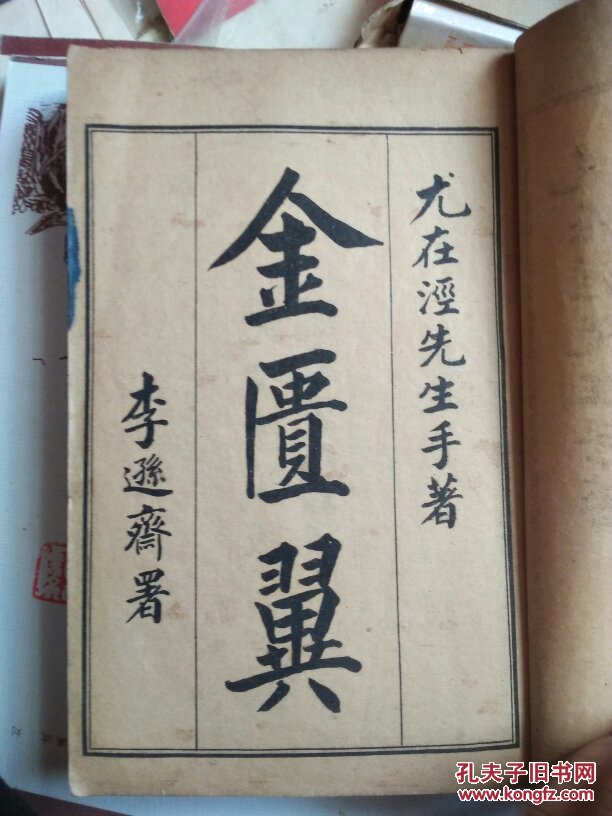 尤在涇先生手著
金匱翼
李遜齋署
孔夫子旧书网
www.kongfz.com